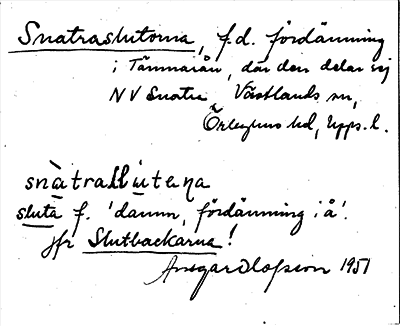 Snatraslutorna, f.d. fördämning
i Tämnarån, där den delar sej
NV Snatra, Västlands sn,
Örbyhus hd, Upps. l.
snàtrallutena
sluta f. 'damm, fördämning i å'.
jfr Slutbackarna!
Ansgar Olofsson 1951